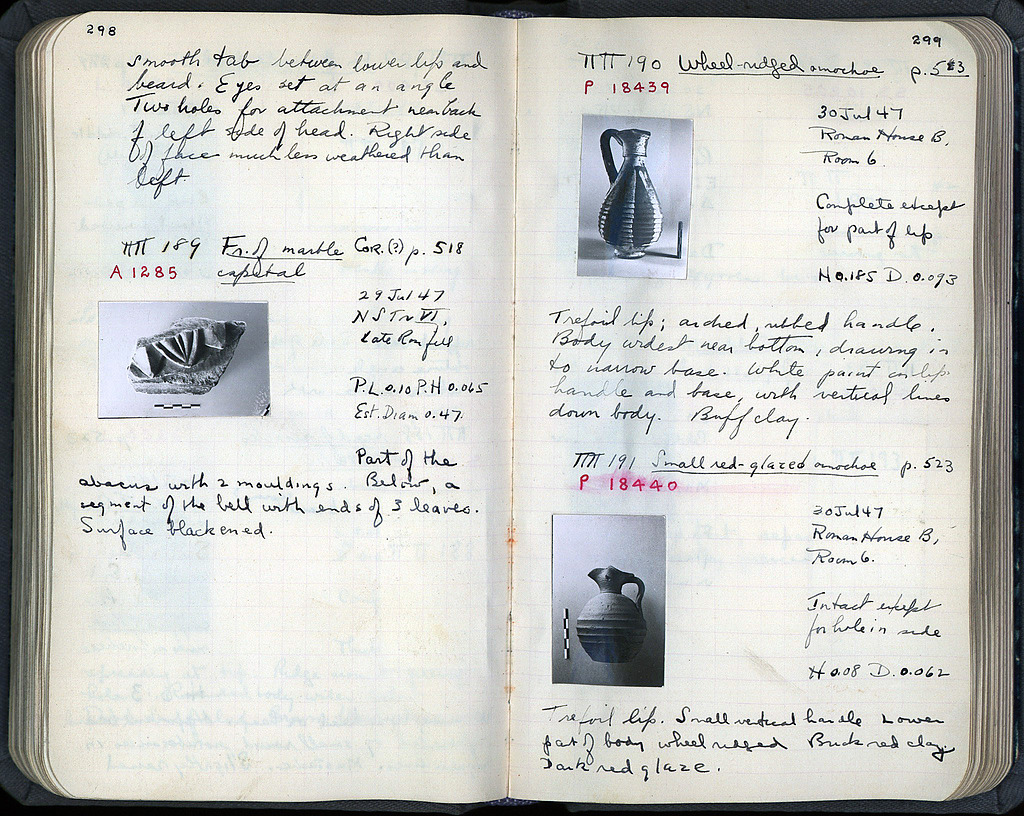 298
smooth tab between lower lip and
beard. Eyes set at an angle
Two holes for attachment near back
of left side of head. Right side
of face much less weathered than
left.
ΠΠ 189 Fr. of marble Cor.(?) p. 518
capital
A 1285
29 Jul 47
N S Tr VI,
Late Rom fill
P.L. 0.10 P.H 0.065
Est. Diam 0.47
Part of the
abacus with 2 mouldings. Below, a
segment of the bell with ends of 3 leaves.
Surface blackened.
299
ΠΠ 190 Wheel-ridged oinochoe p. 523
P 18439
30 Jul 47
Roman House B,
Room 6.
Complete except
for part of lip
H 0.185 D. 0.093
Trefoil lip; arched, ribbed handle.
Body widest near bottom, drawing in
to narrow base. White paint on lip
handle and base, with vertical lines
down body. Buff clay.
ΠΠ 191 Small red-glazed oinochoe p. 523
P 18440
30 Jul 47
Roman House B,
Room 6.
Intact except
for hole in side
H 0.08 D. 0.062
Trefoil lip. Small vertical handle Lower
part of body wheel ridged Brick red clay.
Dark red glaze.